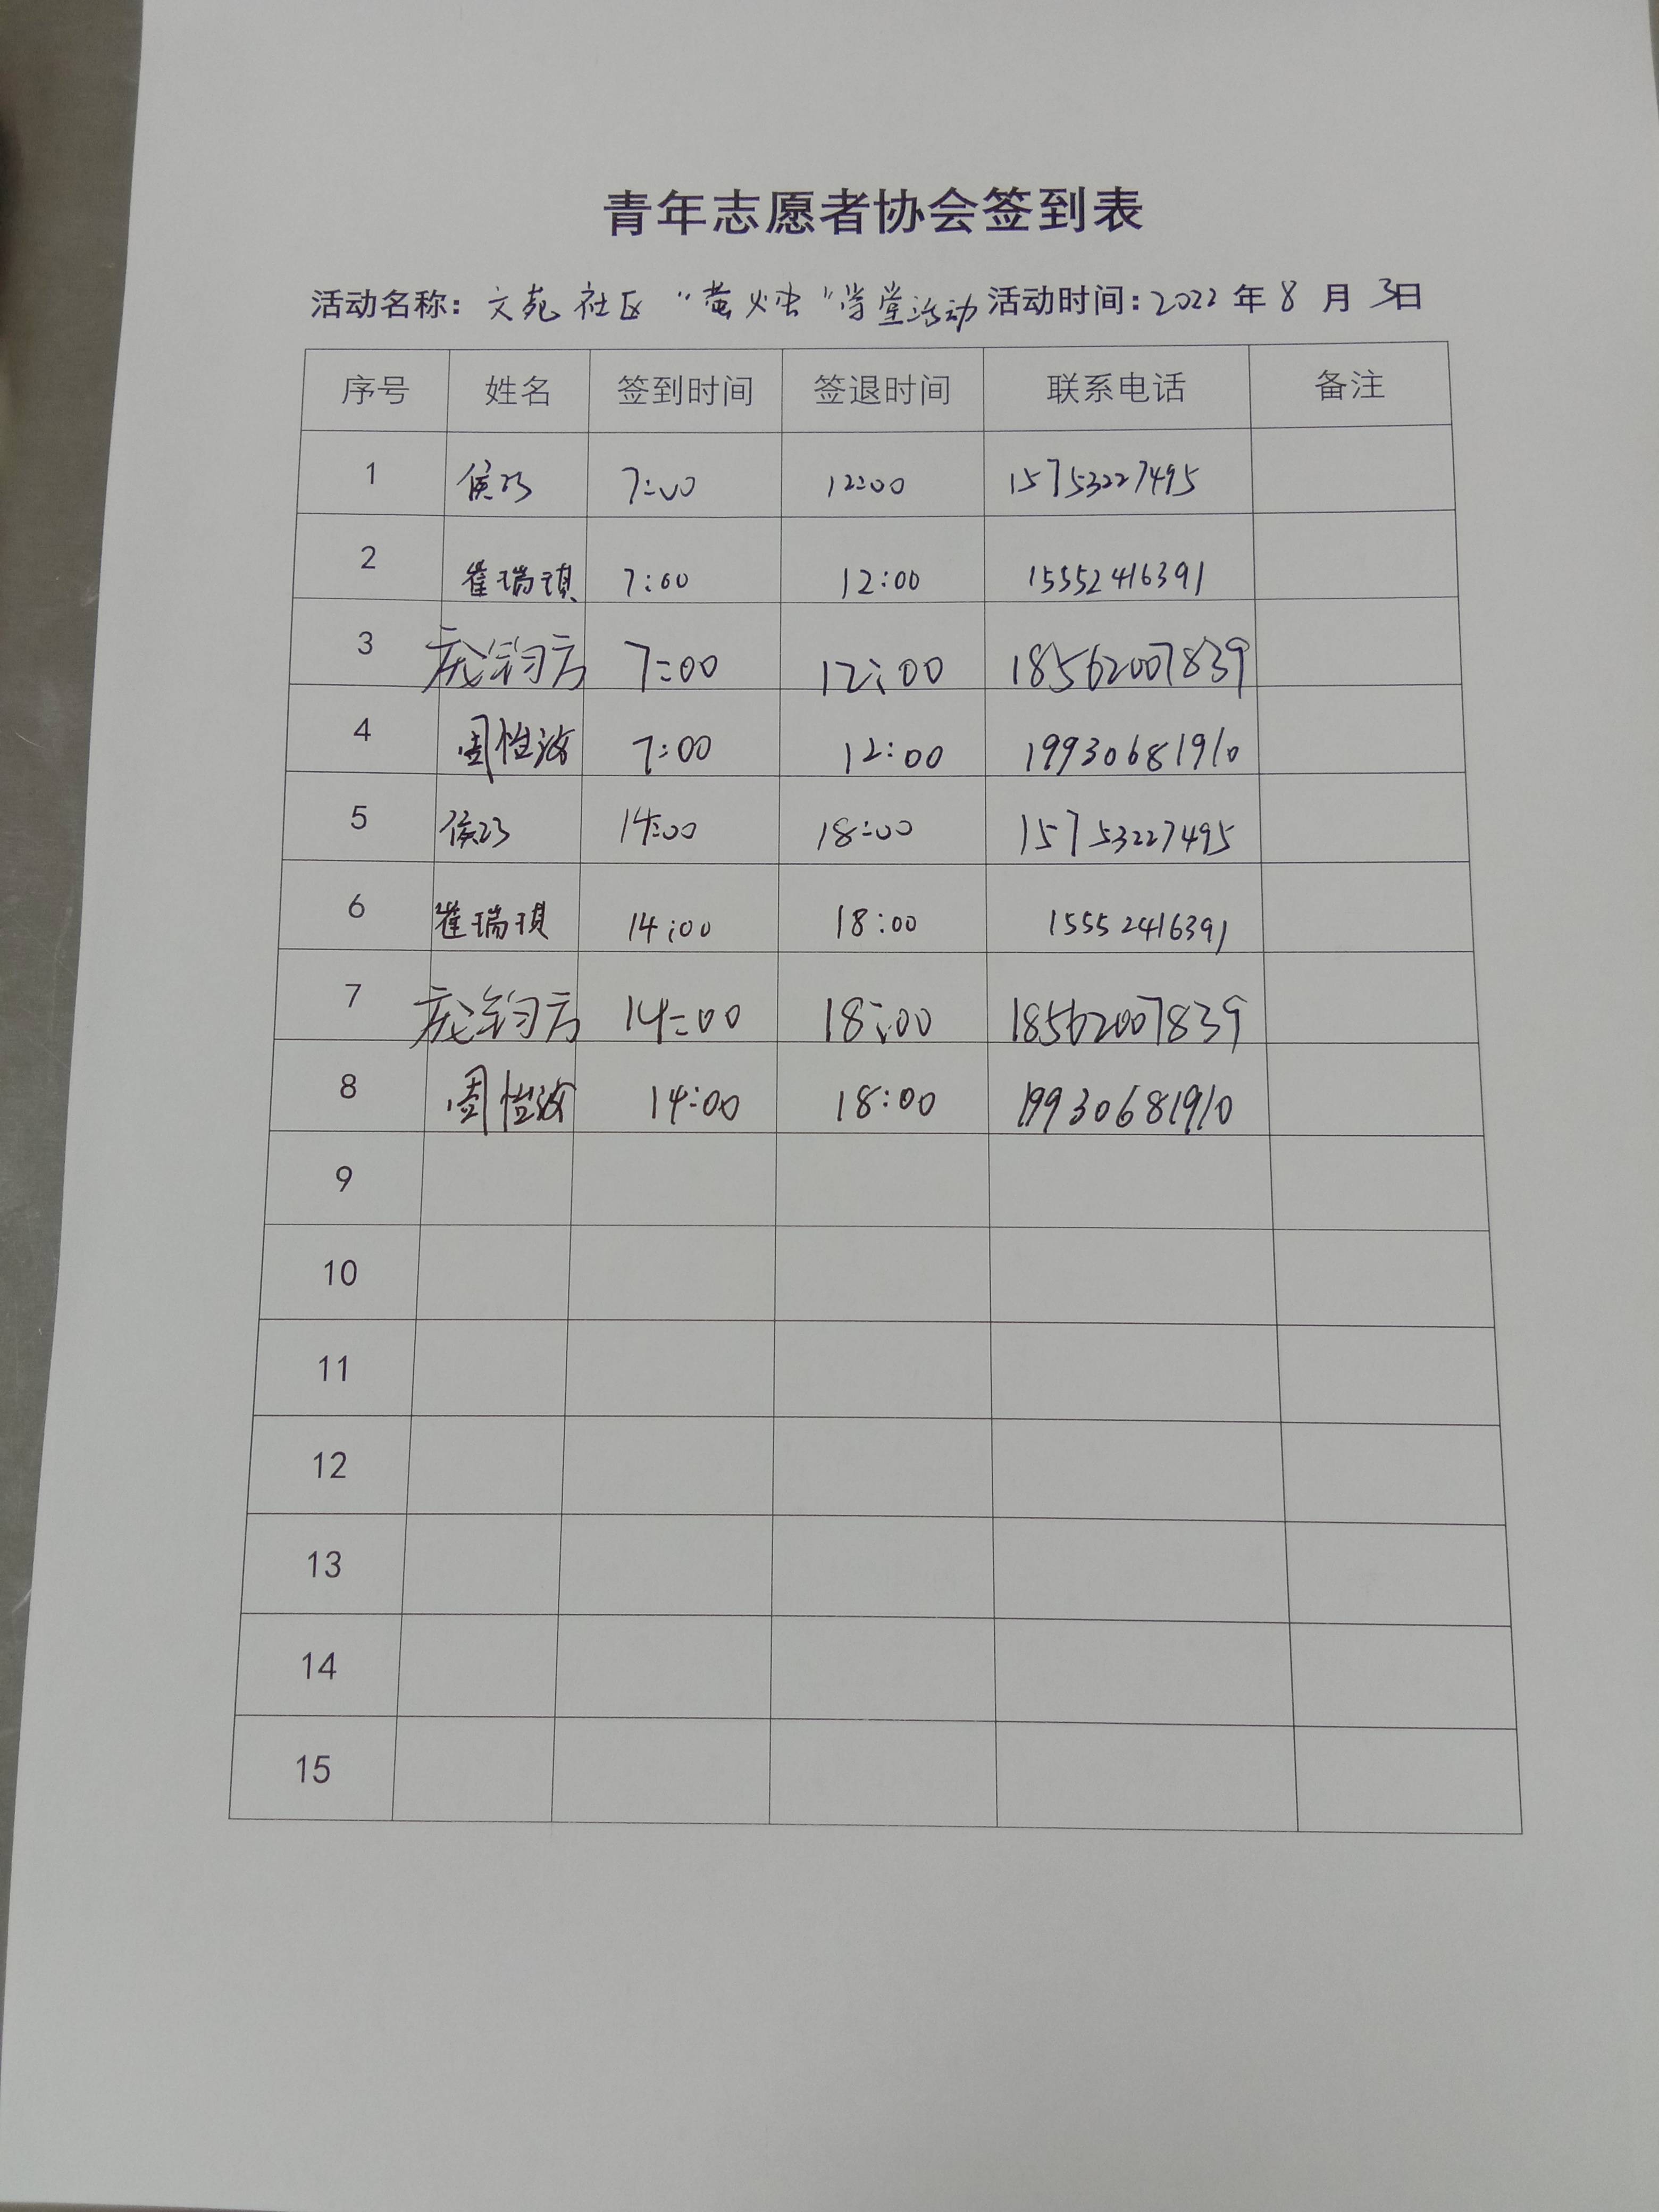 青年志愿者协会签到表
活动名称：文苑社区“萤火虫”学堂活动 活动时间：2022年8月3日
序号 姓名 签到时间 签退时间 联系电话 备注
1 侯巧 7:00 12:00 15753227495
2 崔瑞琪 7:00 12:00 15552416391
3 庞钧方 7:00 12:00 18562007839
4 周 7:00 12:00 19930681910
5 侯巧 14:00 18:00 15753227495
6 崔瑞琪 14:00 18:00 15552416391
7 庞钧方 14:00 18:00 18562007839
8 周 14:00 18:00 19930681910
9
10
11
12
13
14
15